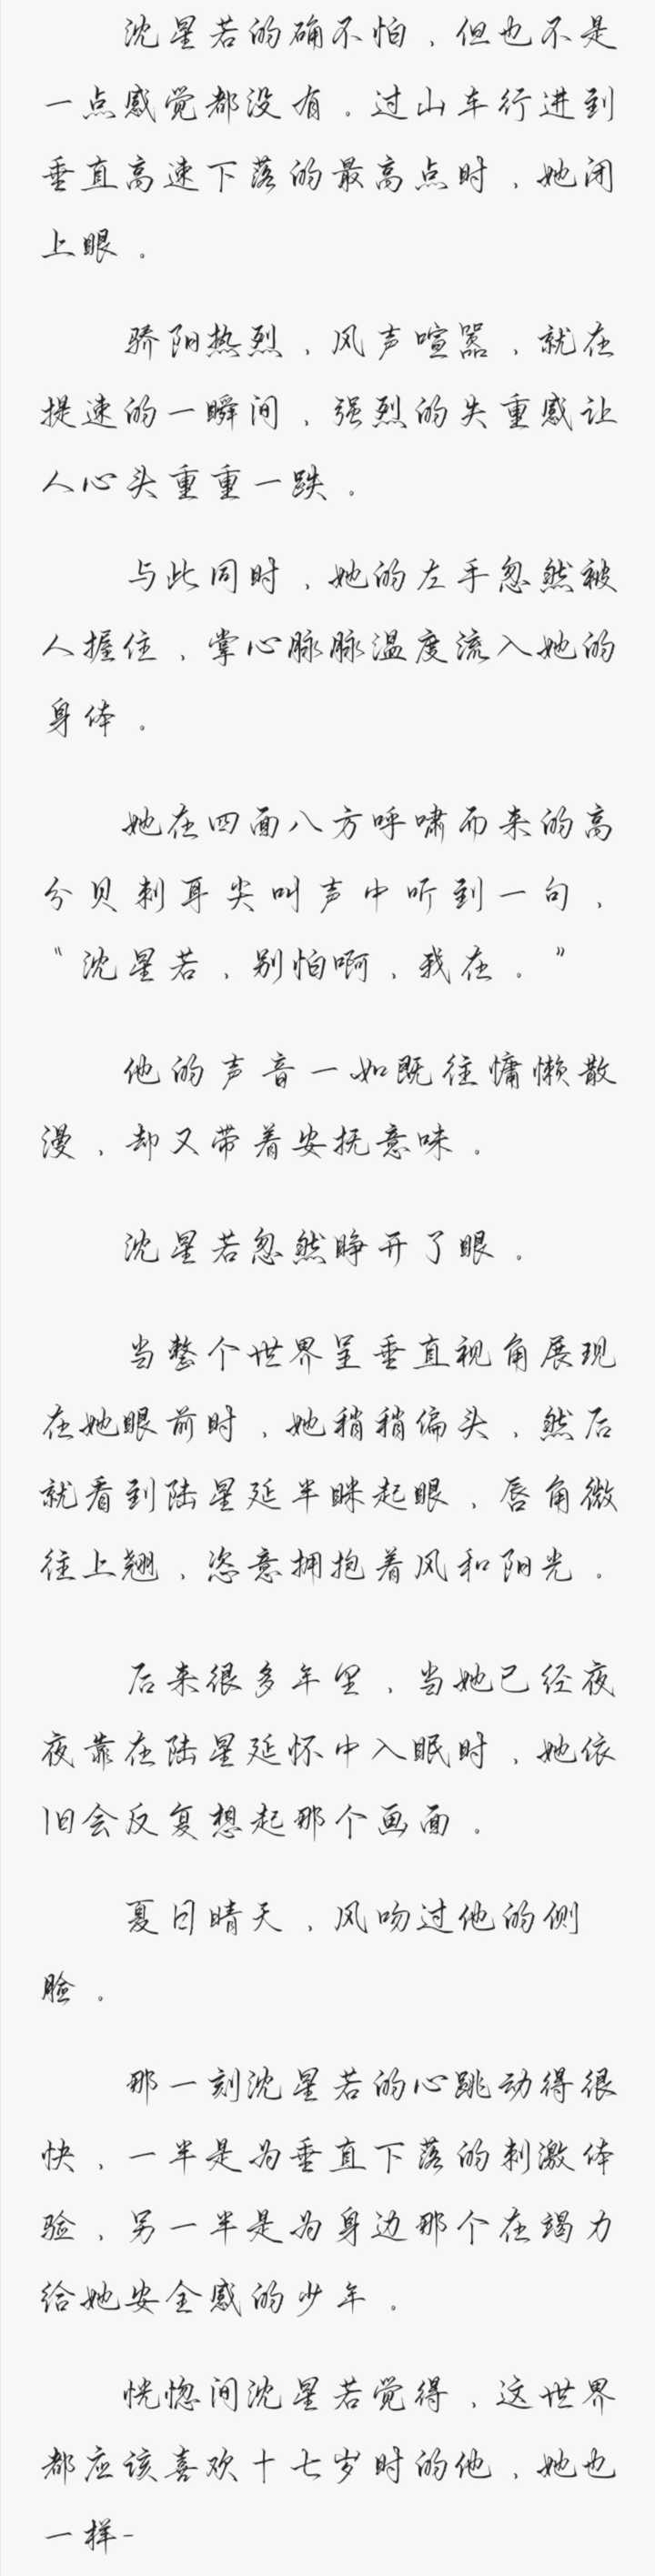 沈星若的确不怕，但也不是
一点感觉都没有。过山车行进到
垂直高速下落的最高点时，她闭
上眼。
骄阳热烈，风声喧嚣，就在
提速的一瞬间，强烈的失重感让
人心头重重一跌。
与此同时，她的左手忽然被
人握住，掌心脉脉温度流入她的
身体。
她在四面八方呼啸而来的高
分贝刺耳尖叫声中听到一句，
“沈星若，别怕啊，我在。”
他的声音一如既往慵懒散
漫，却又带着安抚意味。
沈星若忽然睁开了眼。
当整个世界呈垂直视角展现
在她眼前时，她稍稍偏头，然后
就看到陆星延半眯起眼，唇角微
往上翘，恣意拥抱着风和阳光。
后来很多年里，当她已经夜
夜靠在陆星延怀中入眠时，她依
旧会反复想起那个画面。
夏日晴天，风吻过他的侧
脸。
那一刻沈星若的心跳动得很
快，一半是为垂直下落的刺激体
验，另一半是为身边那个在竭力
给她安全感的少年。
恍惚间沈星若觉得，这世界
都应该喜欢十七岁时的他，她也
一样-